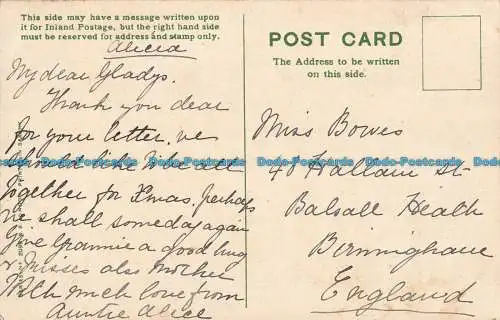 This side may have a message written upon
it for Inland Postage, but the right hand side
must be reserved for address and stamp only.
Alicia
My dear Gladys.
Thank you dear
for your letter. we
should like to be all
together for Xmas, perhaps
we shall someday again
Give Grannie a good hug
& kisses also mother
With much love from
Auntie Alice
POST CARD
The Address to be written
on this side.
Miss Bowes
48 Hallam St
Balsall Heath
Birmingham
England
Dodo-Postcards Dodo-Postcards Dodo-Postcards Dodo-Postcards Dodo-Postcards